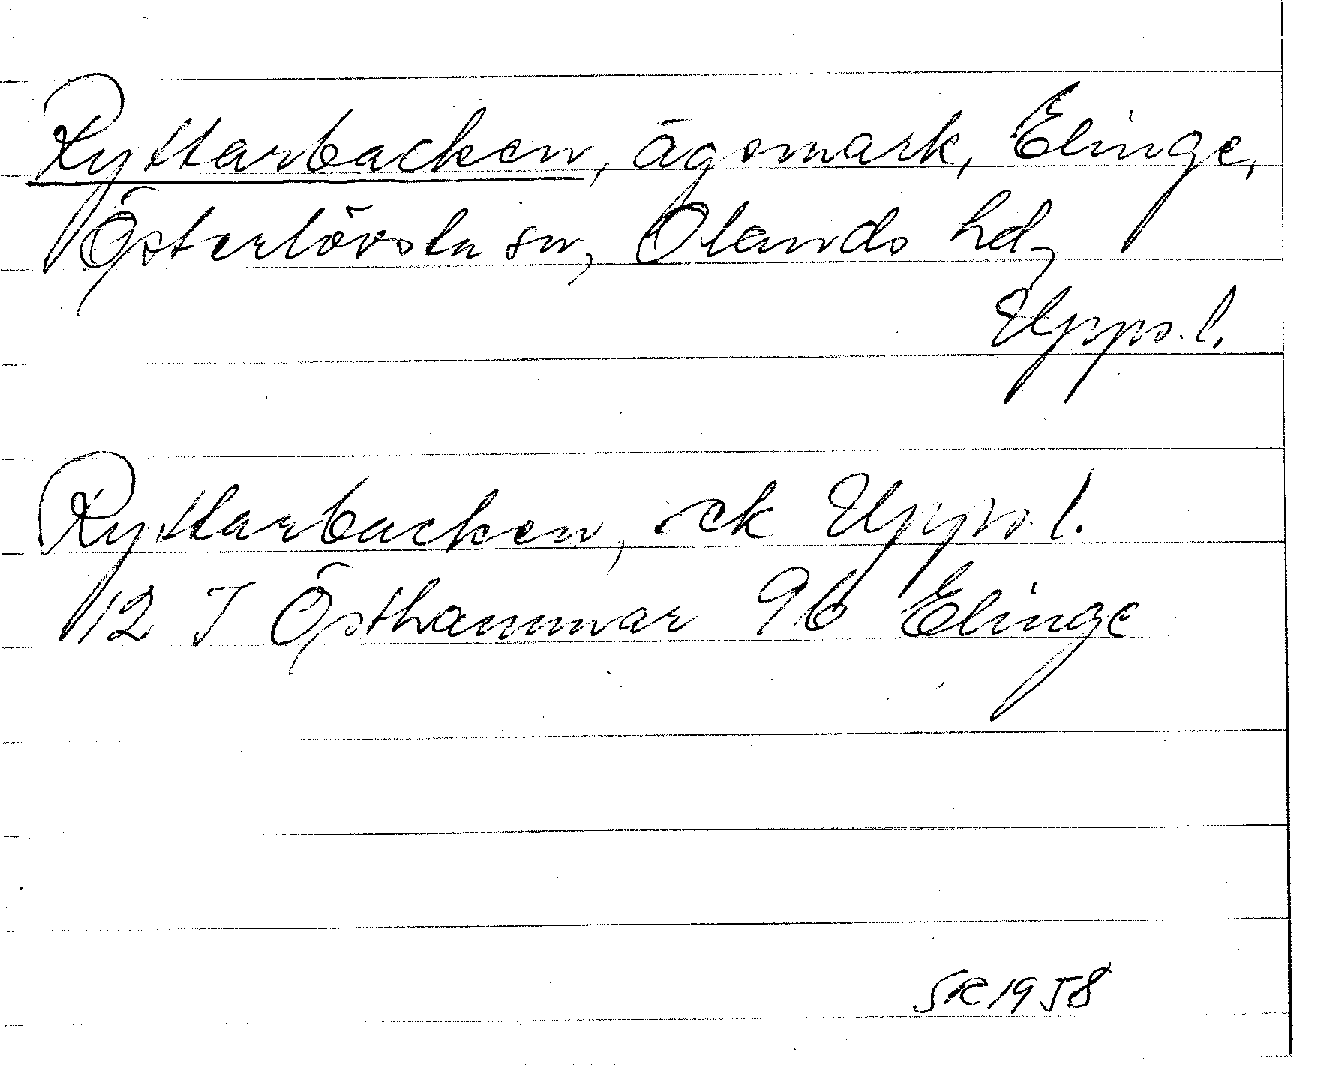 Ryttarbacken, ägomark, Elinge,
Österlövsta sn, Olands hd,
Upps. l.
Ryttarbacken, ek Upps l.
12 I Östhammar 9b Elinge
SR 1958